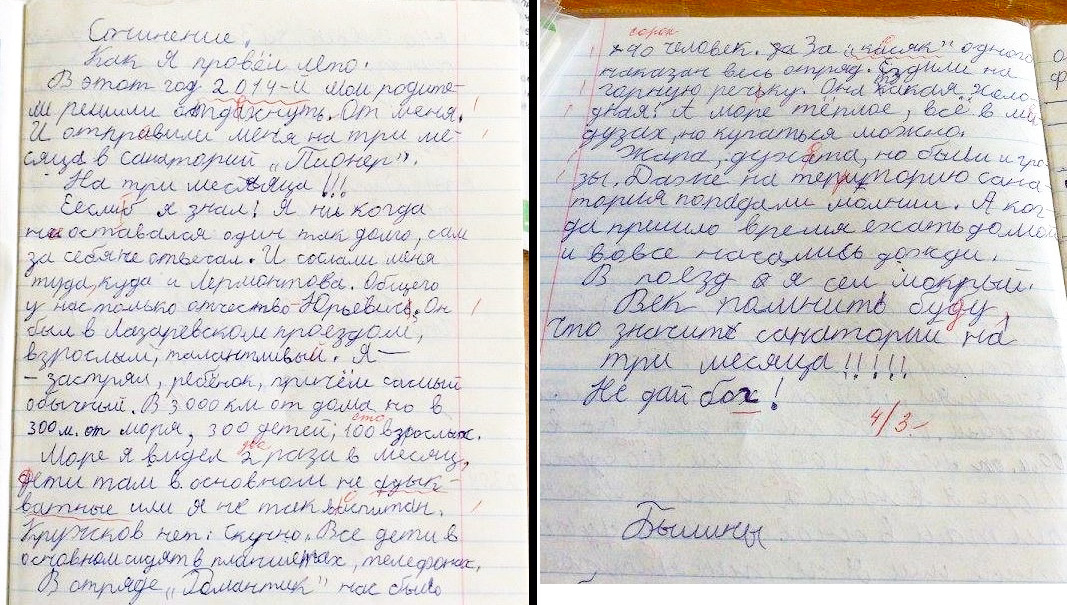 Сочинение.
Как Я провёл лето.
В этот год 2014-й мои родите-
ли решили отдохнуть. От меня.
И отправили меня на три ме-
сяца в санаторий „Пионер".
На три месяца!!!
Если б я знал! Я ни когда
не оставался один так долго, сам
за себя не отвечал. И сослали меня
туда, куда и Лермонтова. Общего
у нас только отчество - Юрьевичи. Он
был в Лазаревском проездом,
взрослый, талантливый. Я —
- застрял, ребёнок, причём самый
обычный. В 3000 км от дома но в
сто
300 м. от моря, 300 детей, 100 взрослых.
два
Море я видел 2 раза в месяц,
дети там в основном не адык-
ватные или я не так воспитан.
Кружков нет. Скучно. Все дети в
основном сидят в планшетах, телефонах.
В отряде „Романтик" нас было
сорок
40 человек. За „касяк" одного
наказан весь отряд. Ездили на
горную речку. Она такая холо-
дная! А море тёплое, всё в ме-
дузах, но купаться можно.
Жара, духата, но были и гро-
зы. Даже на территорию сана-
тория попадали молнии. А ког-
да пришло время ехать домой
и вовсе начались дожди.
В поезд я сел мокрый.
Век помнить буду,
что значит санаторий на
три месяца!!!!!
Не дай бох!
4/3-
Былины